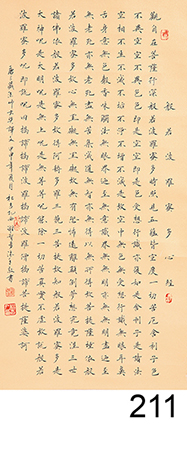 般若波羅蜜多心經
觀自在菩薩行深般若波羅蜜多時照見五蘊皆空度一切苦厄舍利子色
不異空空不異色色即是空空即是色受想行識亦復如是舍利子是諸法
空相不生不滅不垢不淨不增不減是故空中無色無受想行識無眼耳鼻
舌身意無色聲香味觸法無眼界乃至無意識界無無明亦無無明盡乃至
無老死亦無老死盡無苦集滅道無智亦無得以無所得故菩提薩埵依般
若波羅蜜多故心無罣礙無罣礙故無有恐怖遠離顛倒夢想究竟涅槃三世
諸佛依般若波羅蜜多故得阿耨多羅三藐三菩提故知般若波羅蜜多是
大神咒是大明咒是無上咒是無等等咒能除一切苦真實不虛故說般若
波羅蜜多咒即說咒曰揭諦揭諦波羅揭諦波羅僧揭諦菩提薩婆訶
211